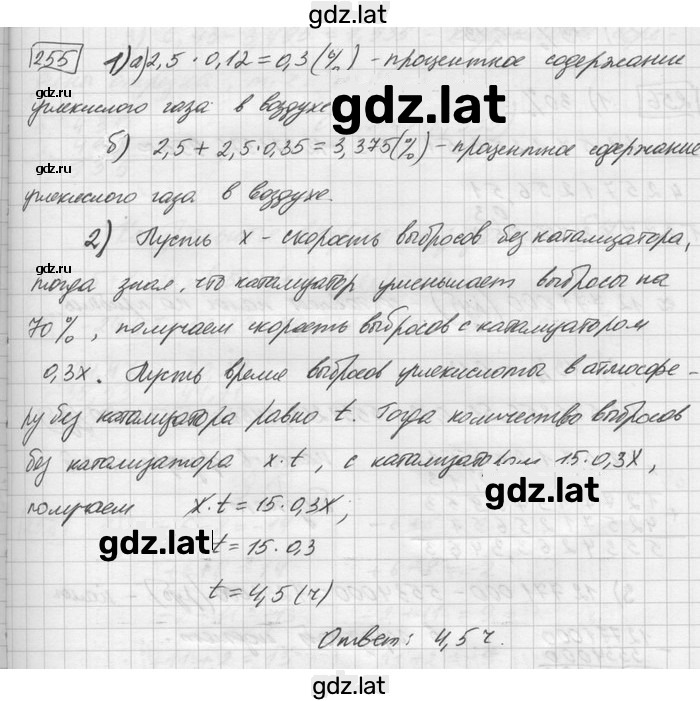 gdz.lat
255 1) а) 2,5 · 0,12 = 0,3 (%) - процентное содержание
углекислого газа в воздухе
gdz.lat
б) 2,5 + 2,5 · 0,35 = 3,375 (%) - процентное содержание
gdz.lat
углекислого газа в воздухе.
2) Пусть x - скорость выбросов без катализатора,
gdz.lat
тогда зная, что катализатор уменьшает выбросы на
70%, получаем скорость выбросов с катализатором
gdz.lat
0,3x. Пусть время выбросов углекислоты в атмосфе-
ру без катализатора равно t. Тогда количество выбросов
без катализатора x · t, с катализатором 15 · 0,3x,
gdz.lat
gdz.lat
получаем x · t = 15 · 0,3x;
gdz.lat
t = 15 · 0,3
t = 4,5 (ч)
Ответ: 4,5 ч.
gdz.lat